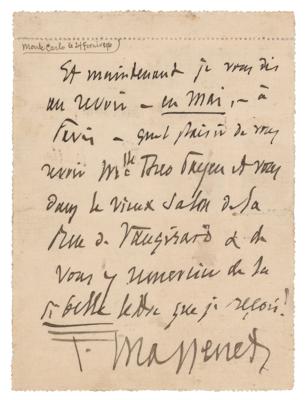 Monte Carlo le
Et maintenant je vous dis
au revoir – en Mai, – à
Paris – quel plaisir de vous
revoir Mlle et vous
dans le vieux Salon de la
Rue de Vaugirard & de
vous y remercier de la
si belle lettre que je reçois!
J. Massenet